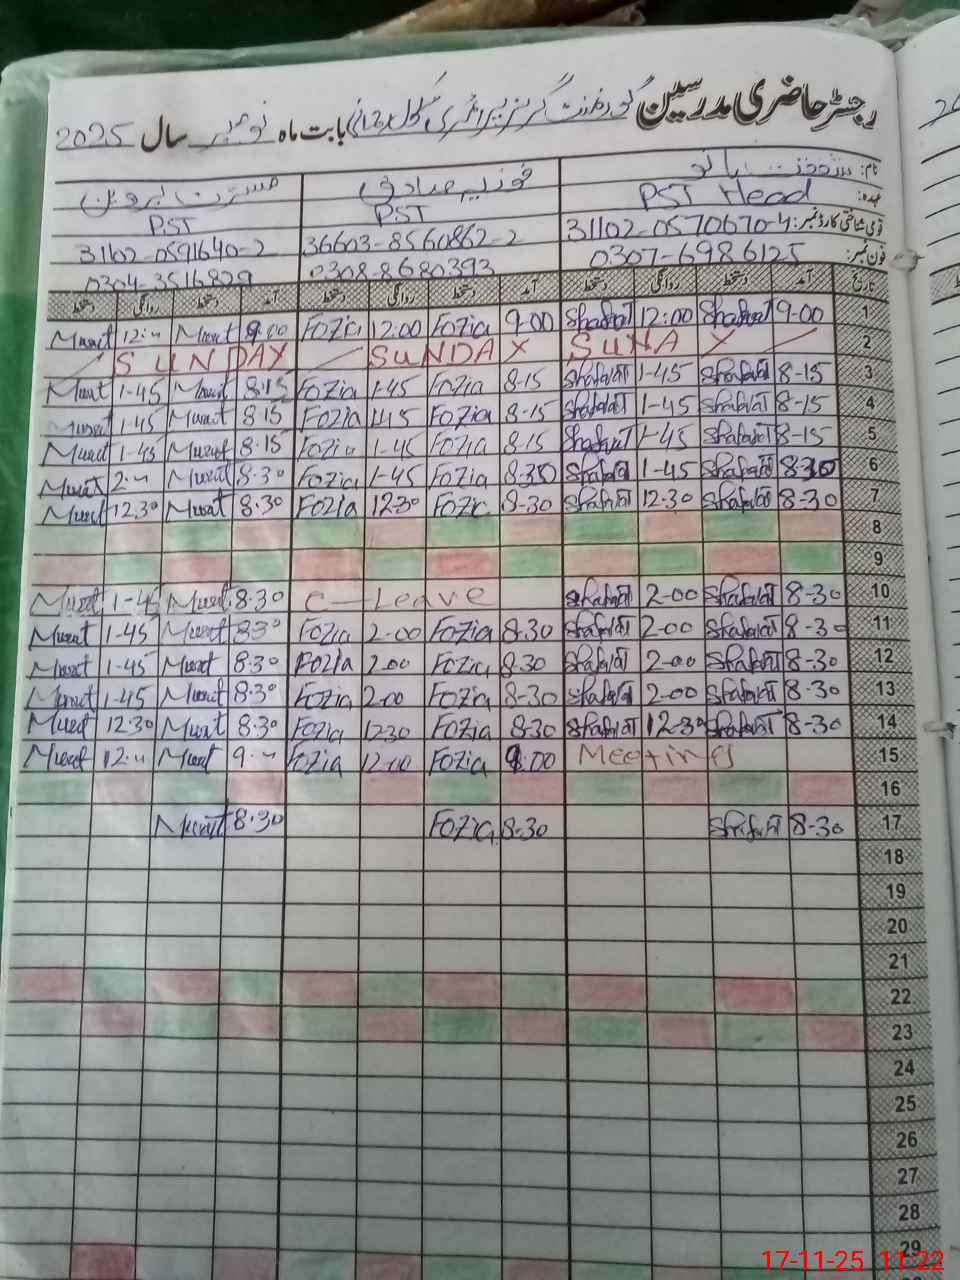 رجسٹر حاضری مدرسین گورنمنٹ گرلز پرائمری سکول بابت ماہ نومبر سال 2025
نام: شفقت بانو فوزیہ صادق مسرت پروین
عہدہ: PST Head PST PST
قومی شناختی کارڈ نمبر: 31102-0570670-4 36603-8560862-2 31102-0591640-2
فون نمبر: 0307-6986125 0308-8680393 0304-3516829
تاریخ آمد دستخط روانگی دستخط آمد دستخط روانگی دستخط آمد دستخط روانگی دستخط
Musrat 12:00 Musrat 9:00 Fozia 12:00 Fozia 9-00 Shafqat 12:00 Shafqat 9-00 1
SUNDAY SUNDAY SUNA Y 2
Musrat 1-45 Musrat 8:15 Fozia 1-45 Fozia 8-15 Shafqat 1-45 Shafqat 8-15 3
Musrat 1-45 Musrat 8:15 Fozia 1-45 Fozia 8-15 Shafqat 1-45 Shafqat 8-15 4
Musrat 1-45 Musrat 8:15 Fozia 1-45 Fozia 8-15 Shafqat 1-45 Shafqat 8-15 5
Musrat 2:00 Musrat 8:30 Fozia 1-45 Fozia 8-30 Shafqat 1-45 Shafqat 8-30 6
Musrat 12:30 Musrat 8:30 Fozia 12-30 Fozia 8-30 Shafqat 12-30 Shafqat 8-30 7
8
9
Musrat 1-45 Musrat 8:30 C-Leave Shafqat 2-00 Shafqat 8-30 10
Musrat 1-45 Musrat 8:30 Fozia 2-00 Fozia 8-30 Shafqat 2-00 Shafqat 8-30 11
Musrat 1-45 Musrat 8:30 Fozia 2-00 Fozia 8-30 Shafqat 2-00 Shafqat 8-30 12
Musrat 1-45 Musrat 8:30 Fozia 2-00 Fozia 8-30 Shafqat 2-00 Shafqat 8-30 13
Musrat 12:30 Musrat 8:30 Fozia 12-30 Fozia 8-30 Shafqat 12-30 Shafqat 8-30 14
Musrat 12:00 Musrat 9:00 Fozia 12-00 Fozia 9:00 Meeting 15
16
Musrat 8:30 Fozia 8-30 Shafqat 8-30 17
18
19
20
21
22
23
24
25
26
27
28
29
17-11-25 11:22